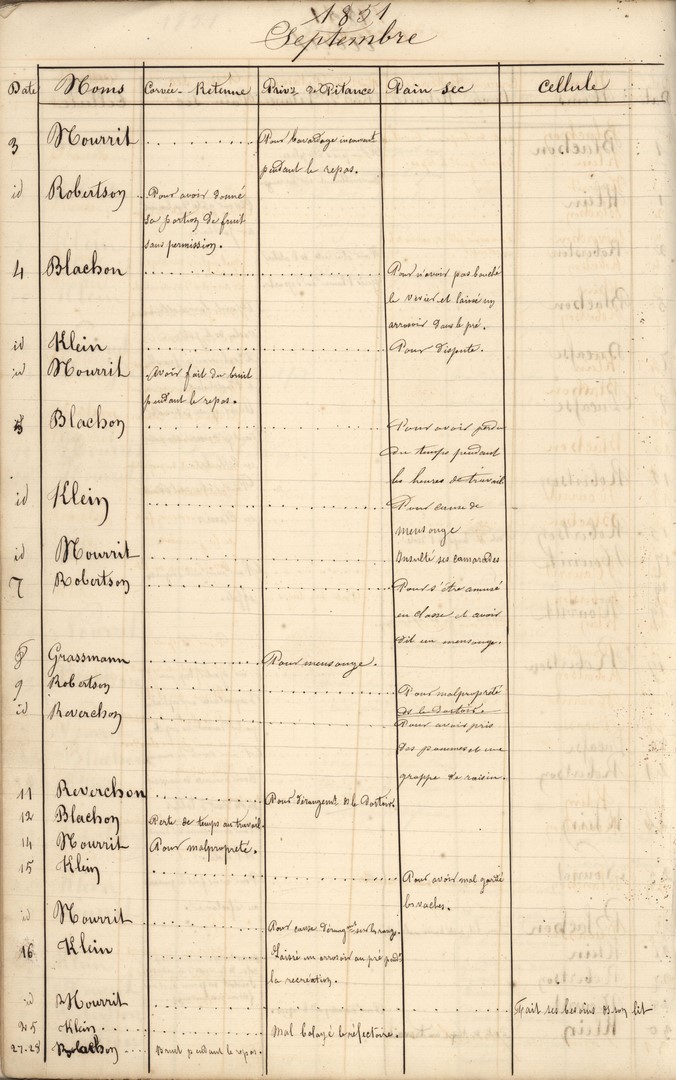 1851
Septembre
Date Noms Corvée - Retenue Privon de Pitance Pain sec Cellule
3 Nourrit Pour bavardage incessant
pendant le repas.
id Robertson Pour avoir donné
sa portion de fruit
sans permission.
4 Blachon Pour n'avoir pas bouché
le vivier et laissé un
arrosoir dans le pré.
id Klein Pour dispute.
id Nourrit Avoir fait du bruit
pendant le repas.
5 Blachon Pour avoir perdu
du temps pendant
les heures de travail
id Klein Pour cause de
mensonge
id Nourrit Insulté ses camarades
7 Robertson Pour s'être amusé
en classe et avoir
dit un mensonge.
8 Grassmann Pour mensonge.
9 Robertson Pour malpropreté
ds le dortoir
id Reverchon Pour avoir pris
des pommes et une
grappe de raisin.
11 Reverchon Pour dérangemt ds le Dortoir
12 Blachon Perte de temps au travail.
14 Nourrit Pour malpropreté.
15 Klein Pour avoir mal gardé
les vaches.
id Nourrit Pour cause dérangmt sur les rangs.
16 Klein Laissé un arrosoir au pré pendt
la recréation.
id Nourrit Fait ses besoins ds son lit
25 Klein Mal balayé le réfectoire.
27-28 Blachon Bruit pendant le repas.